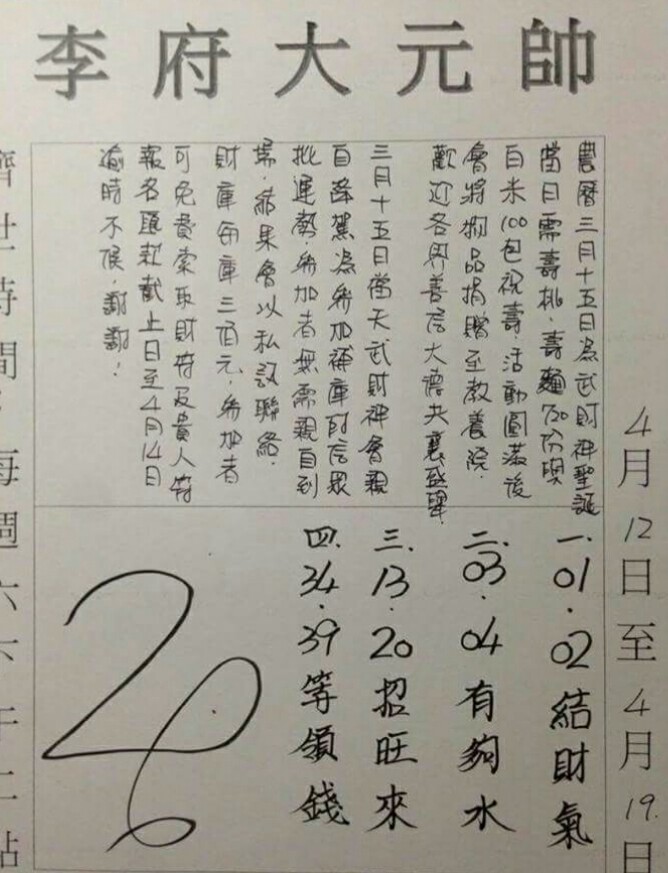 李府大元帥
4月12日至4月19.日
農曆三月十五日為武財神聖誕
當日需壽桃.壽麵720份與
白米100包祝壽.活動圓滿後
會將物品捐贈至教養院.
歡迎各界善信大德共襄盛舉.
三月十五日當天武財神會親
自降駕為參加補庫的信眾
批運勢.參加者無需親自到
場.結果會以私訊聯絡.
財庫每庫三佰元.參加者
可免費索取財符及貴人符
報名匯款截止日至4月14日
逾時不候.謝謝!
一.01.02結財氣
二.03.04有夠水
三.13.20招旺來
四.34.39等領錢
26
濟世時間:每週六下午二點